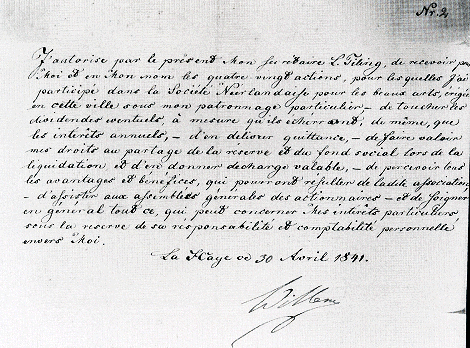 Nr. 2
J'autorise par le présent Mon secrétaire L. Filing, de recevoir pour
Moi et en Mon nom les quatre vingt actions, pour lesquelles J'ai
participé dans la Société Néerlandaise pour les beaux arts, érigée
en cette ville sous mon patronnage particulier – de toucher les
dividendes eventuels, à mesure qu'ils écherront; de même, que
les intérêts annuels, – d'en délivrer quittance, – de faire valoir
mes droits au partage de la réserve et du fond social lors de la
liquidation et d'en donner decharge valable, – de percevoir tous
les avantages et bénéfices, qui pourront résulter de ladite association
– d'assister aux assemblées générales des actionnaires – et de soigner
en general tout ce, qui peut concerner Mes intérêts particuliers,
sous la reserve de sa responsabilité et comptabilité personnelle
envers Moi.
La Haye ce 30 Avril 1841.
Willem